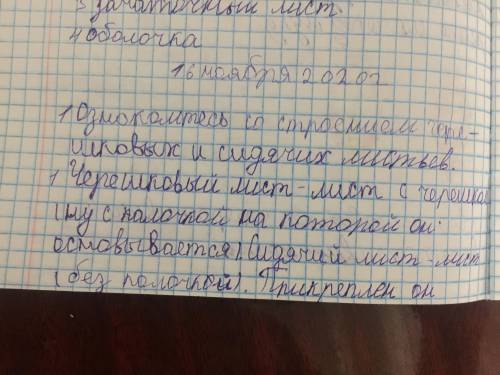 3 зачаточный лист
4 оболочка
16 ноября 2020г
1 Ознокомтесь со строением чере-
шковых и сидячих листьев.
1 Черешковый лист-лист с черешком
(ну с палочкой на которой он
остовывается) Сидячий лист-лист
(без палочкой). Прикреплен он